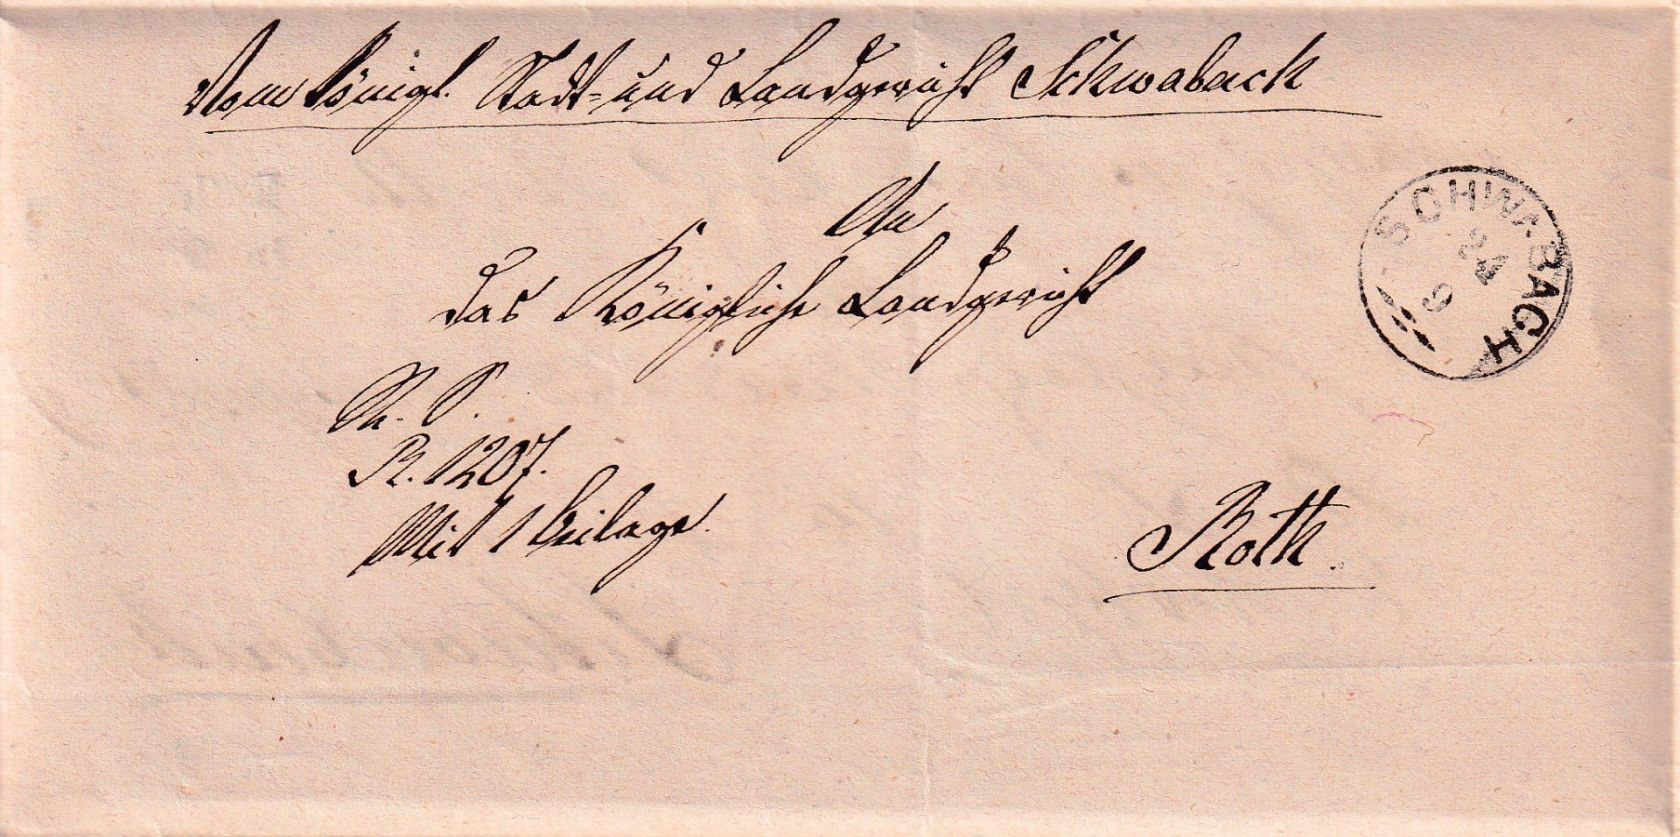 Vom Königl. Stadt- und Landgericht Schwabach
An
das Königliche Landgericht
R. S.
R. 1207.
Mit 1 Beilage.
Roth.
SCHWABACH
24
9